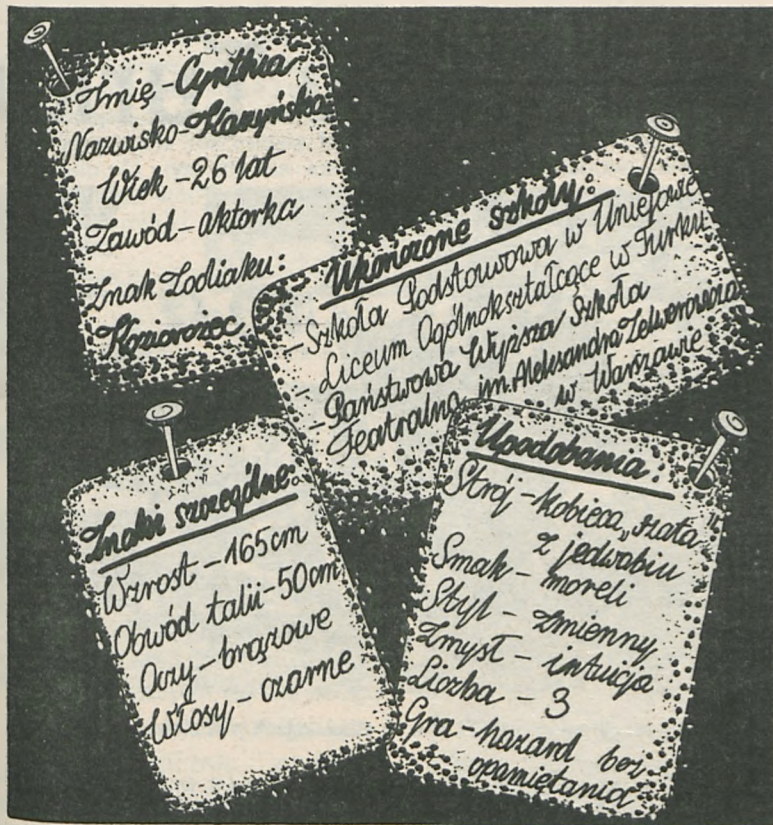 Imię - Cynthia
Nazwisko - Kaszyńska
Wiek - 26 lat
Zawód - aktorka
Znak Zodiaku:
Koziorożec
Ukończone szkoły:
- Szkoła Podstawowa w Uniejowie
- Liceum Ogólnokształcące w Turku
- Państwowa Wyższa Szkoła
Teatralna im. Aleksandra Zelwerowicza
w Warszawie
Znaki szczególne:
Wzrost - 165 cm
Obwód talii - 50 cm
Oczy - brązowe
Włosy - czarne
Upodobania:
Strój - kobieca „szata”
z jedwabiu
Smak - moreli
Styl - zmienny
Zmysł - intuicja
Liczba - 3
Gra - hazard bez
opamiętania